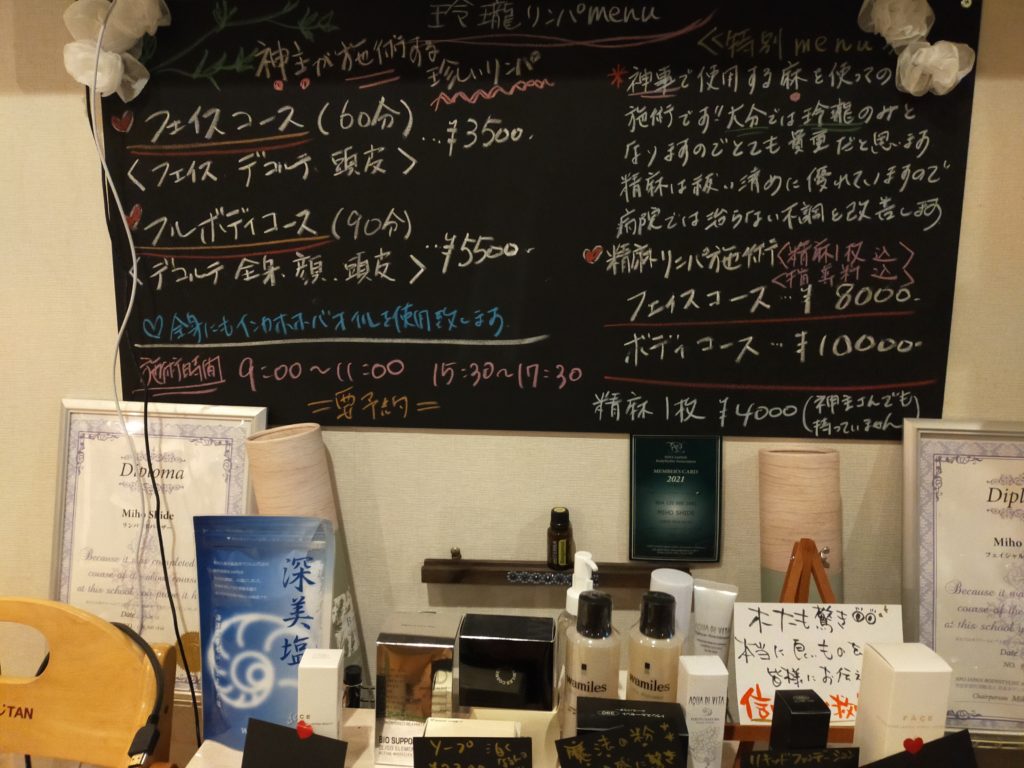 玲瓏リンパmenu
神主が施術する
珍しいリンパ
フェイスコース (60分) …¥3500.
〈フェイス、デコルテ、頭皮〉
フルボディコース (90分) …¥5500.
〈デコルテ 全身、顔、頭皮〉
♡全身にもインカホホバオイルを使用致します
施術時間 9:00〜11:00 15:30〜17:30
=要予約=
≪特別menu≫
*神事で使用する麻を使っての
施術です!!大分では玲瓏のみと
なりますのでとても貴重だと思います
精麻は祓い清めに優れていますので
病院では治らない不調を改善します
精麻リンパ施術〈精麻1枚 込〉
フェイスコース …¥ 8000.
ボディコース …¥10000.
精麻 1枚 ¥4000 (神主さんでも
持っていません)
Diploma
Miho Shide
Because it was completed
course of
at this school
MEMBER'S CARD
2021
MIHO SHIDE
深美塩
BIO SUPPO
wamiles
wamiles
AQUA DI VITA
AQUA DI VITA
本当に良いものを
皆様にお伝え
FACE
魔法の粉
リキッドファンデーション
TAN
Dipl
Miho
フェイシャル
Because it wa
course of the
at this school